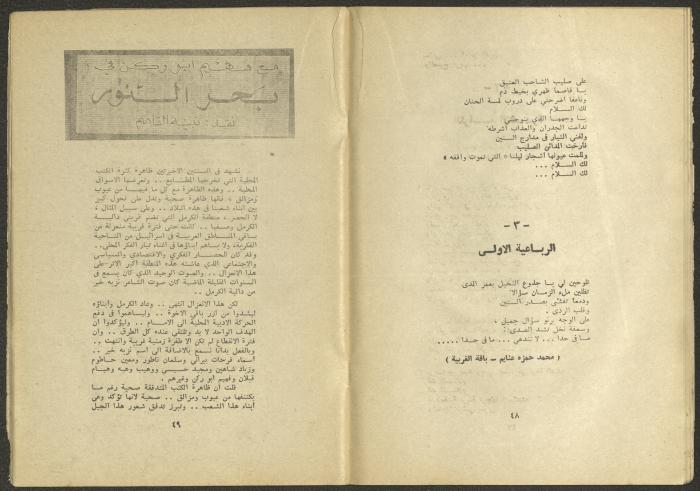 على صليب الشاحب العتيق
يا قاصما ظهري بخيط دم
وناعفا اضرحتي على دروب لمسة الحنان
لك الســـلام
يا وجهها الذي ينوحني
تداعت الجدران والعذاب أشرطه
ولفني التيار في مدارج السنين
فأرخت المدائن الصليب
ولملمت عيونها أشجار ليلنا « التي تموت واقفه »
لك الســـلام ...
لك الســـلام ...
- ٣ -
الرباعية الاولى
تلوحين لي يا جذوع النخيل بعمر المدى
تظلين ملء الزمان سؤالا
ودمعا تفشى بصدر السنين
وقلب الردى .
على الوجه يرنو سؤال جميل .
وسعفة نخل تشد الصدى :
ما في حدا ... لا تندهي ... ما في حدا .....
( محمد حمزه غنايم – باقة الغربية )
٤٨
مع فهيم ابو ركن في :
بحر النور
نشهد في السنتين الاخيرتين ظاهرة كثرة الكتب
المحلية التي تخرجها المطابع... وتعرضها الاسواق
المحلية .. وهذه الظاهرة مع كل ما فيها من عيوب
ومزالق ، فانها ظاهرة صحية وتدل على تحول كبير
بين ابناء شعبنا في هذه البلاد .. وعلى سبيل المثال ،
لا الحصر ، منطقة الكرمل التي تضم قريتي دالية
الكرمل وعسفيا .. كانت حتى فترة قريبة منعزلة عن
باقي المناطق العربية في اسرائيل من الناحية
الفكرية، ولا يساهم ابناؤها في اغناء تيار الفكر المحلي..
وقد كان للحصار الفكري والاقتصادي والسياسي
والاجتماعي الذي عاشته هذه المنطقة أكبر الاثر على
هذا الانعزال .. والصوت الوحيد الذي كان يسمع في
السنوات القليلة الماضية كان صوت الشاعر نزيه خير
من دالية الكرمل ..
لكن هذا الانعزال انتهى .. وعاد الكرمل وأبناؤه
ليشدوا من أزر باقي الاخوة .. وليساهموا في دفع
الحركة الادبية المحلية الى الامام .. وليؤكدوا أن
الهدف الواحد لا بد وتلتقي عنده كل الطرق .. وان
فترة الانقطاع لم تكن الا طفرة زمنية غريبة وانتهت ..
وبالفعل بدأنا نسمع بالاضافة الى اسم نزيه خير ..
أسماء فرحات بيراني وسلمان ناطور ومعين حاطوم
وزياد شاهين ومجيد حسيسي ووهيب وهبه وهيام
قبلان وفهيم أبو ركن وغيرهم .
قلت أن ظاهرة الكتب المتدفقة صحية رغم ما
يكتنفها من عيوب ومزالق .. صحية لانها تؤكد وعي
أبناء هذا الشعب .. وتبرز تدفق شعور هذا الجيل
٤٩